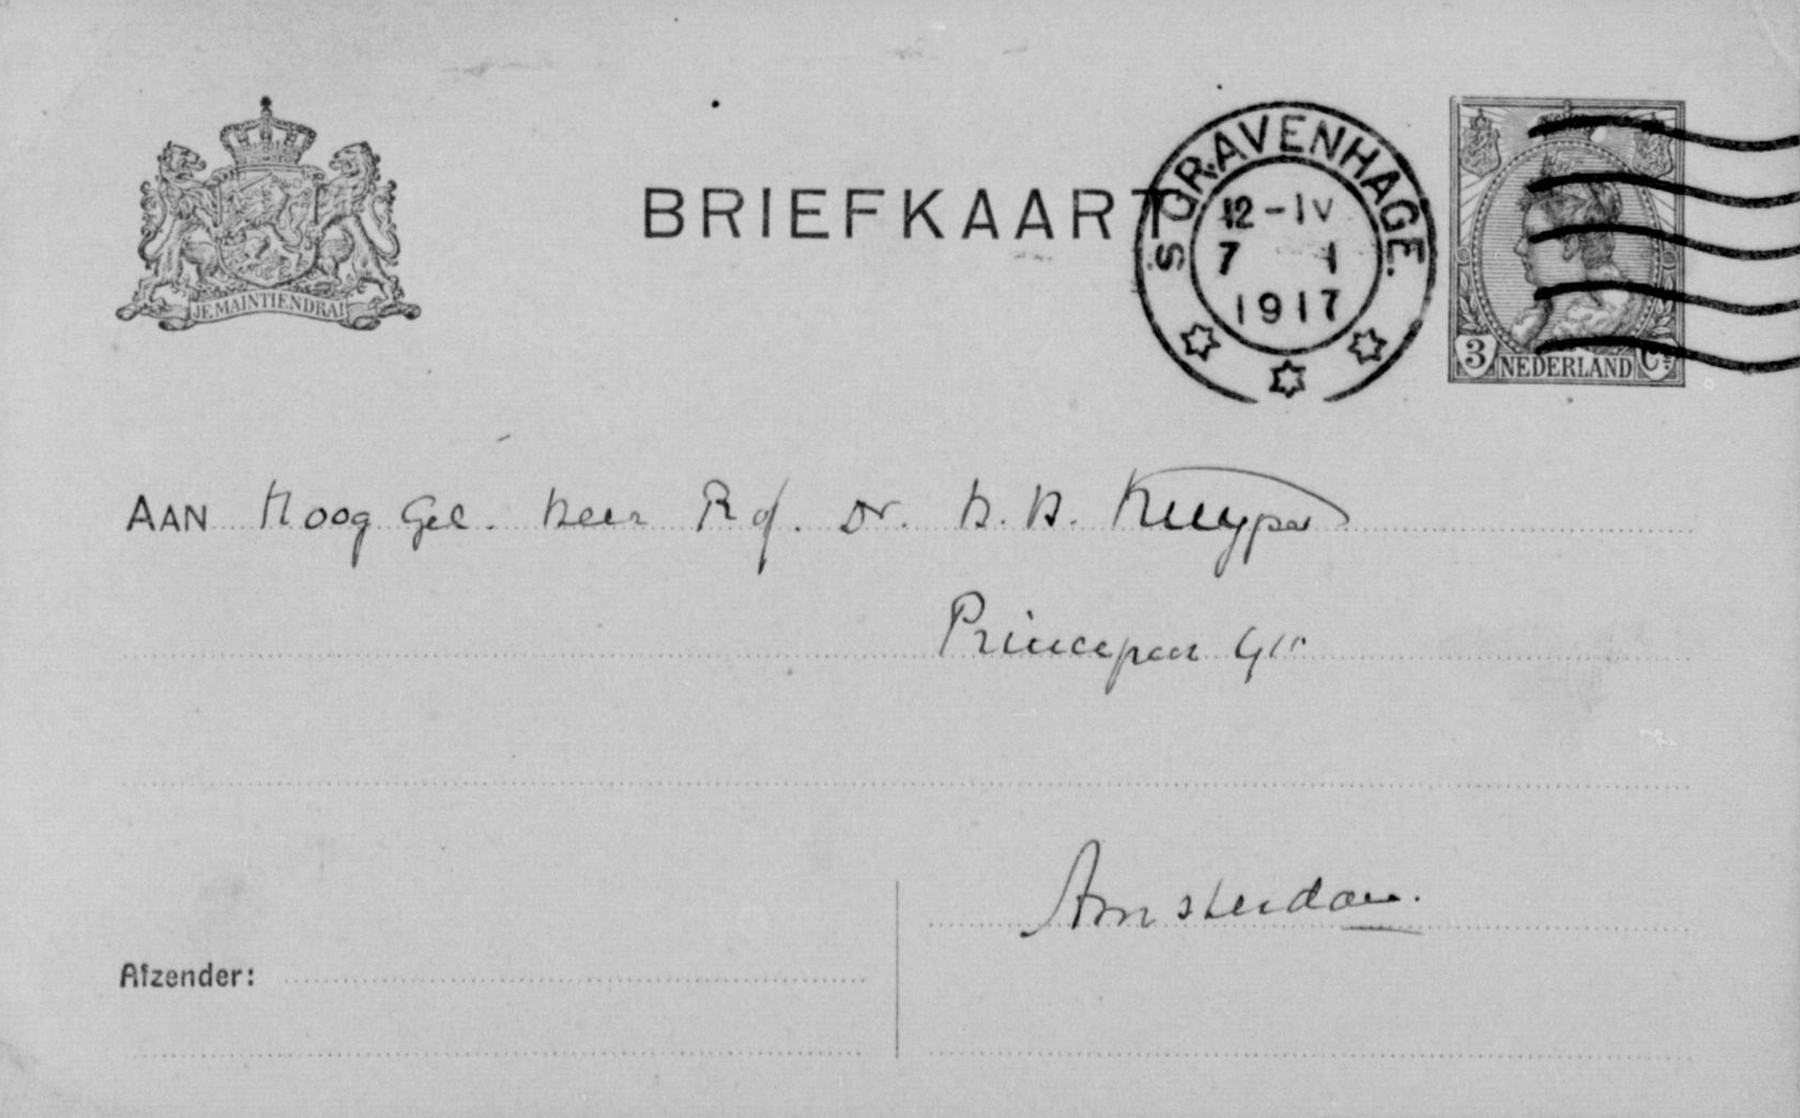 JE MAINTIENDRAI
BRIEFKAART
'S GRAVENHAGE.
12-IV
7 1
1917
3 NEDERLAND Ct
AAN Hoog Gel. Heer Prof. Dr. H. H. Kuyper
Amsterdam.
Afzender: